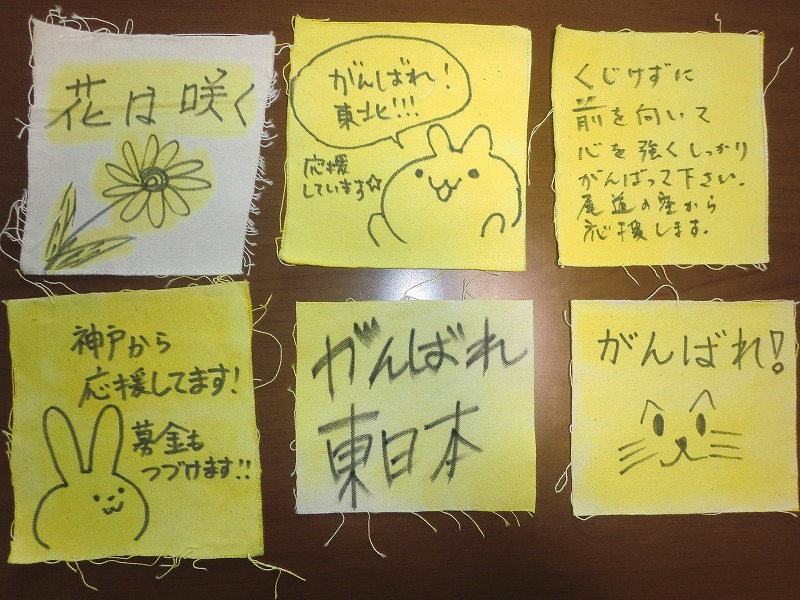 花は咲く
がんばれ!
東北!!!
応援
しています☆
くじけずに
前を向いて
心を強くしっかり
がんばって下さい.
尾道の空から
応援します.
神戸から
応援してます!
募金も
つづけます!!
がんばれ
東日本
がんばれ!